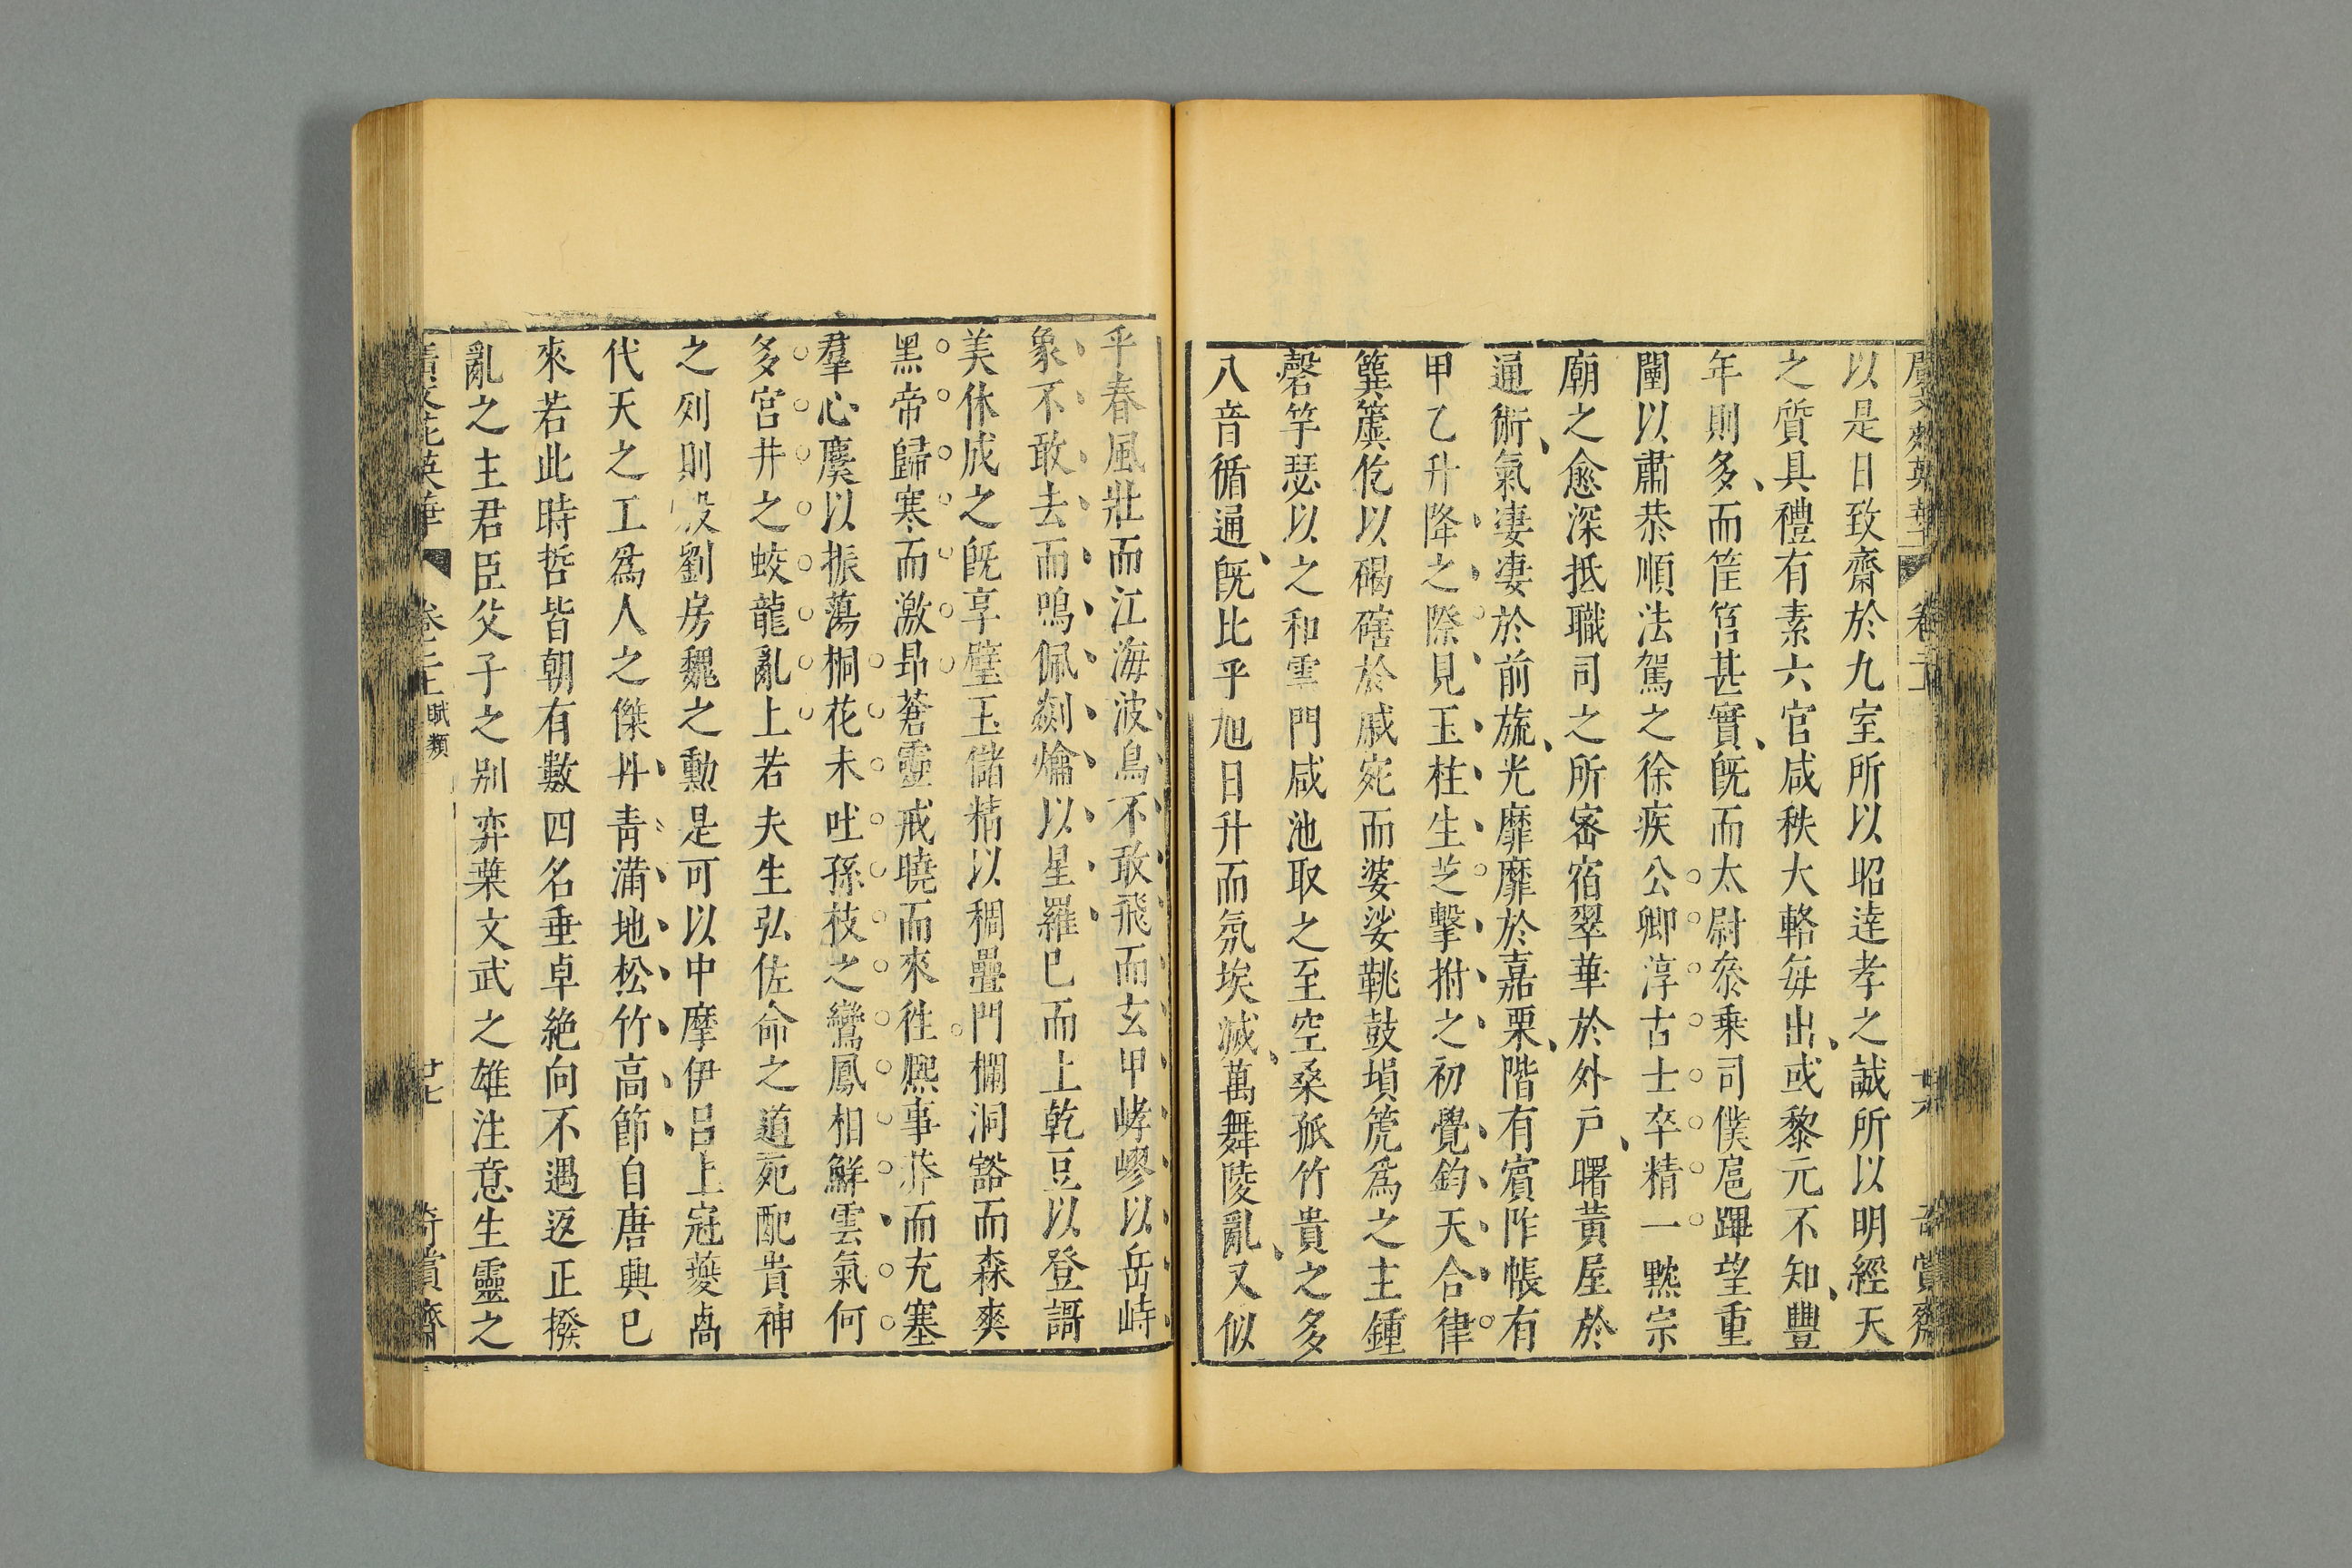 以是日致齋於九室所以昭達孝之誠所以明經天
之質具禮有素六官咸秩大輅每出或黎元不知豐
年則多而筐筥甚實旣而太尉叅乗司僕扈蹕望重
闉以肅恭順法駕之徐疾公卿淳古士卒精一黙宗
廟之愈深抵職司之所宻宿翠華於外戸曙黃屋於
通術氣凄凄於前旒光靡靡於嘉栗階有賓阼帳有
甲乙升降之際見玉柱生芝擊拊之初覺鈞天合律
簨簴仡以碣磍於戚宛而婆娑鞉鼓塤篪爲之主鍾
磬竽瑟以之和雲門咸池取之至空桑孤竹貴之多
八音循通旣比乎旭日升而氛埃滅萬舞陵亂又似
乎春風壯而江海波鳥不敢飛而玄甲㟧嵺以岳峙
象不敢去而鳴佩剡爚以星羅已而上乾豆以登謌
美休成之旣享璧玉儲精以稠疊門闌洞豁而森爽
黑帝歸寒而激昻蒼靈戒曉而來徃熙事莽而充塞
羣心虞以振蕩桐花未吐孫枝之鸞鳳相鮮雲氣何
多宮井之蛟龍亂上若夫生弘佐命之道死配貴神
之列則殷劉房魏之勳是可以中摩伊吕上冠䕫卨
代天之工爲人之傑丹青滿地松竹高節自唐興已
來若此時哲皆朝有數四名垂卓絶向不遇返正撥
亂之主君臣父子之别弈葉文武之雄注意生靈之
卷 賦類
廿七